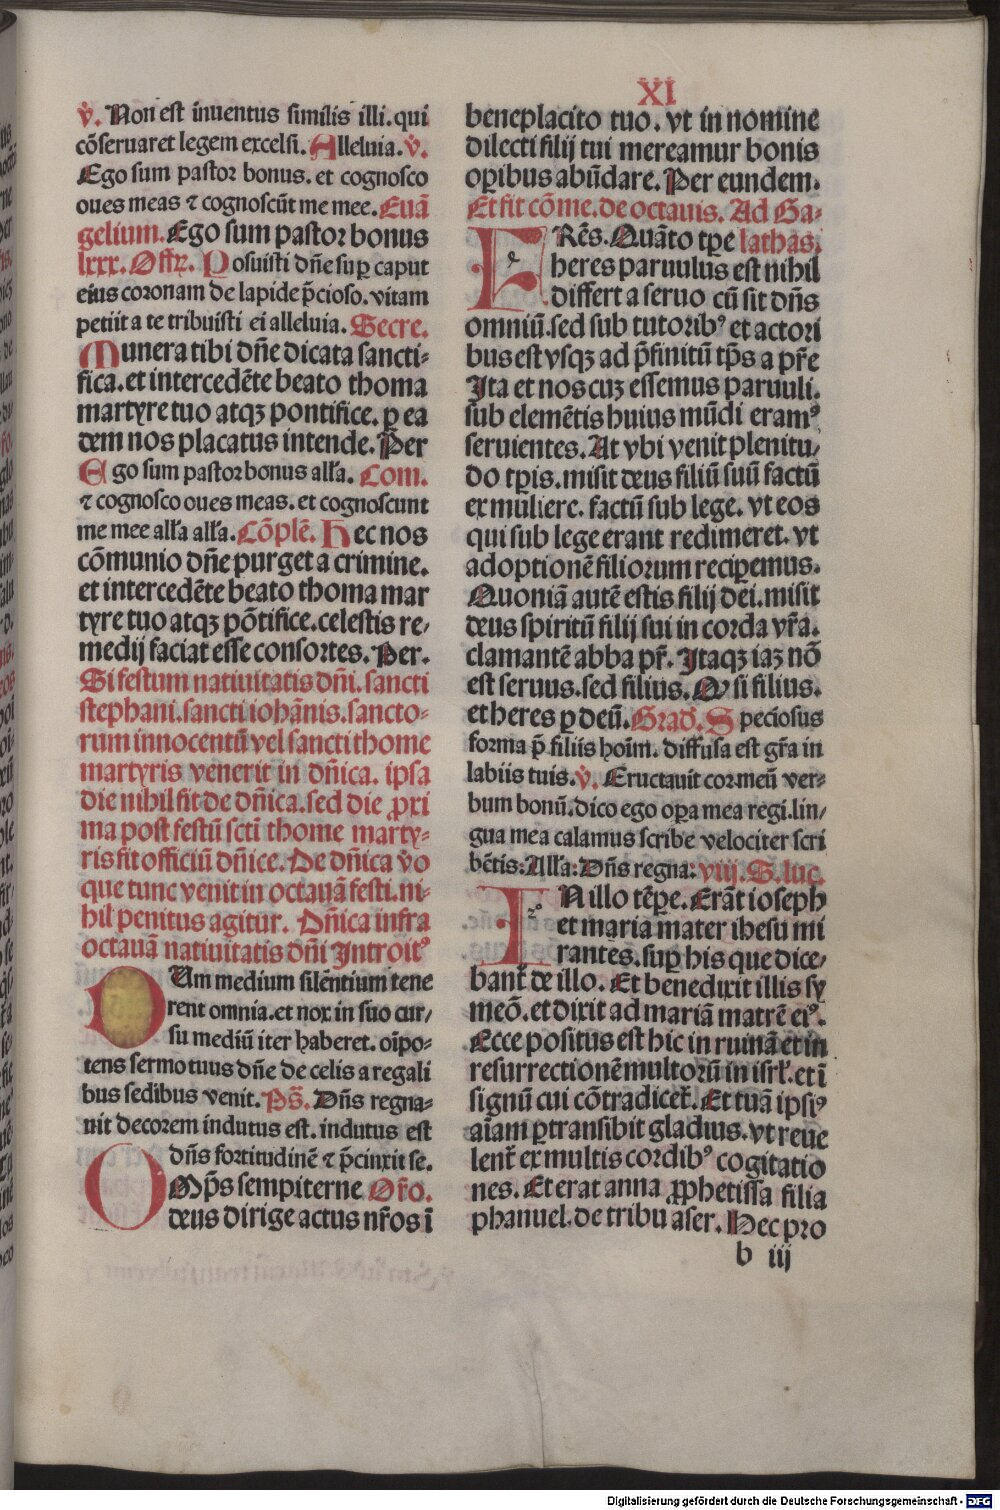 XI
v̇. Non est inuentus similis illi. qui
cōseruaret legem excelsi. Alleluia. v̇.
Ego sum pastor bonus. et cognosco
oues meas ⁊ cognoscūt me mee. Euā
gelium. Ego sum pastor bonus
lxxx. Offr̄. Posuisti dn̄e suꝑ caput
eius coronam de lapide p̄cioso. vitam
petiit a te tribuisti ei alleluia. Secre.
Munera tibi dn̄e dicata sancti-
fica. et intercedēte beato thoma
martyre tuo atqꝫ pontifice. ꝑ ea
dem nos placatus intende. Per
Ego sum pastor bonus all'a. Com.
⁊ cognosco oues meas. et cognoscunt
me mee all'a all'a. Cōplē. Hec nos
cōmunio dn̄e purget a crimine.
et intercedēte beato thoma mar
tyre tuo atqꝫ pōtifice. celestis re-
medij faciat esse consortes. Per.
Si festum natiuitatis dn̄i. sancti
stephani. sancti iohānis. sancto-
rum innocentū vel sancti thome
martyris venerit in dn̄ica. ipsa
die nihil fit de dn̄ica. sed die ꝓxi
ma post festū scti thome marty-
ris fit officiū dn̄ice. De dn̄ica v̇o
que tunc venit in octauā festi. ni-
hil penitus agitur. Dn̄ica infra
octauā natiuitatis dn̄i Introitꝰ
DUm medium silēntium tene
rent omnia. et nox in suo cur-
su mediū iter haberet. oīpo-
tens sermo tuus dn̄e de celis a regali
bus sedibus venit. Ps̄. Dn̄s regna-
uit decorem indutus est. indutus est
dn̄s fortitudinē ⁊ p̄cinxit se.
OMp̄s sempiterne Or̄o.
deus dirige actus nr̄os ī
beneplacito tuo. vt in nomine
dilecti filij tui mereamur bonis
oꝑibus abūdare. Per eundem.
Et fit cōme. de octauis. Ad Ga-
FRēs. Quāto tꝑe lathas.
heres paruulus est nihil
differt a seruo cū sit dn̄s
omniū. sed sub tutoribꝰ et actori
bus est vsqꝫ ad p̄finitū tp̄s a pr̄e
Ita et nos cuꝫ essemus paruuli.
sub elemētis huius mūdi eramꝰ
seruientes. At vbi venit plenitu-
do tꝑis. misit deus filiū suū factū
ex muliere. factū sub lege. vt eos
qui sub lege erant redimeret. vt
adoptionē filiorum reciꝑemus.
Quoniā autē estis filij dei. misit
deus spiritū filij sui in corda vr̄a.
clamantē abba pr̄. Itaqꝫ iaꝫ nō
est seruus. sed filius. Qꝫ si filius.
et heres ꝑ deū. Grad̄. Speciosus
forma p̄ filiis hoīm. diffusa est gr̄a in
labiis tuis. v̇. Eructauit cor meū ver-
bum bonū. dico ego oꝑa mea regi. lin-
gua mea calamus scribe velociter scri
bētis: All'a: Dn̄s regna: viij. S. luc.
IN illo tēꝑe. Erāt ioseph
et maria mater ihesu mi
rantes. suꝑ his que dice-
bant̄ de illo. Et benedixit illis sy
meō. et dixit ad mariā matrē eiꝰ.
Ecce positus est hic in ruinā et in
resurrectionē multorū in isrl̄. et ī
signū cui cōtradicet̄. Et tuā ipsiꝰ
aīam ꝑtransibit gladius. vt reue
lent̄ ex multis cordibꝰ cogitatio
nes. Et erat anna ꝓphetissa filia
phanuel. de tribu aser. Hec pro
b iij
Digitalisierung gefördert durch die Deutsche Forschungsgemeinschaft - DFG